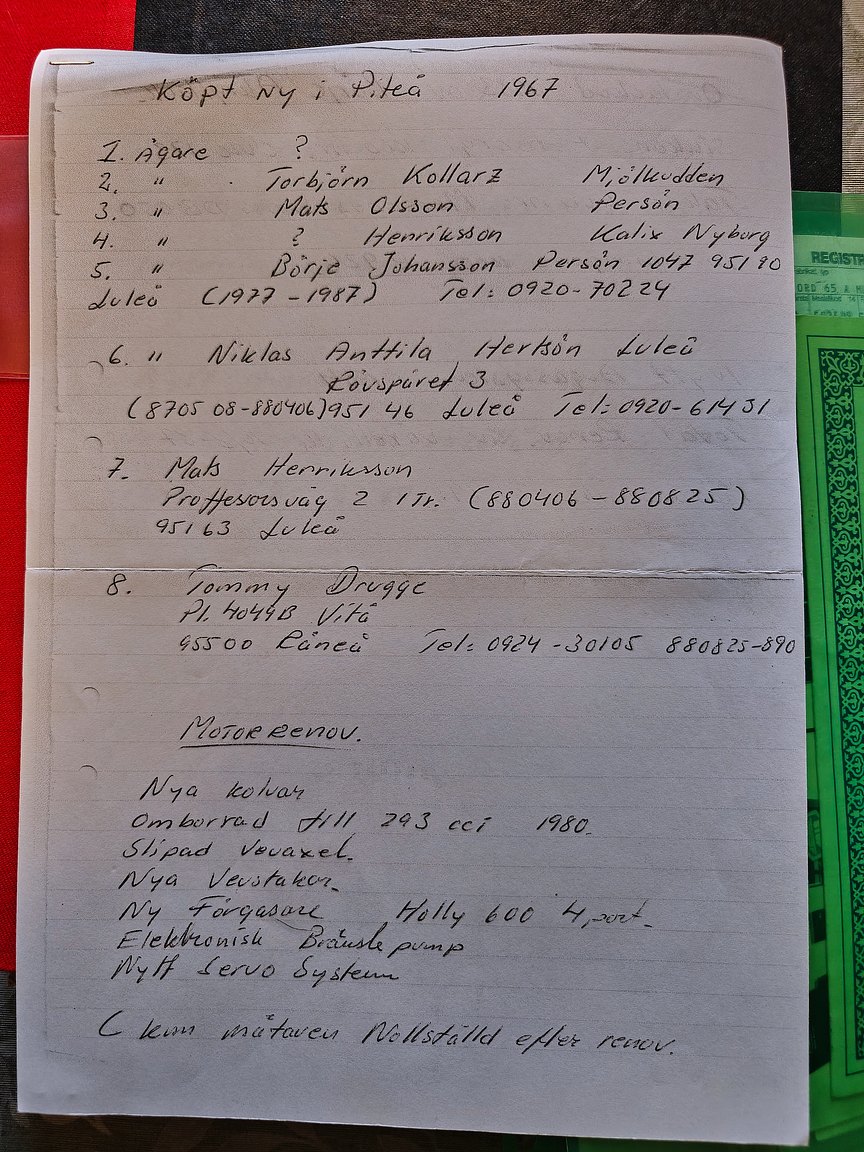 Köpt Ny i Piteå 1967
1. Ägare ?
2. " Torbjörn Kollarz Mjölkudden
3. " Mats Olsson Persön
4. " ? Henriksson Kalix Nyborg
5. " Börje Johansson Persön 1047 951 90
Luleå (1977-1987) Tel: 0920-70224
6. " Niklas Anttila Hertsön Luleå
Rävspåret 3
(870508-880406) 951 46 Luleå Tel: 0920-61431
7. Mats Henriksson
Proffesorsväg 2 1 Tr. (880406-880825)
951 63 Luleå
8. Tommy Drugge
Pl. 4049B Vitå
95500 Råneå Tel: 0924-30105 880825-890
Motorrenov.
Nya kolvar
Omborrad till 293 cci 1980.
Slipad Vevaxel.
Nya Vevstakar.
Ny Förgasare Holly 600 4,port.
Elektronisk Bränslepump
Nytt Servo System
( km mätaren Nollställd efter renov.
REGISTR
ORD 65 A M